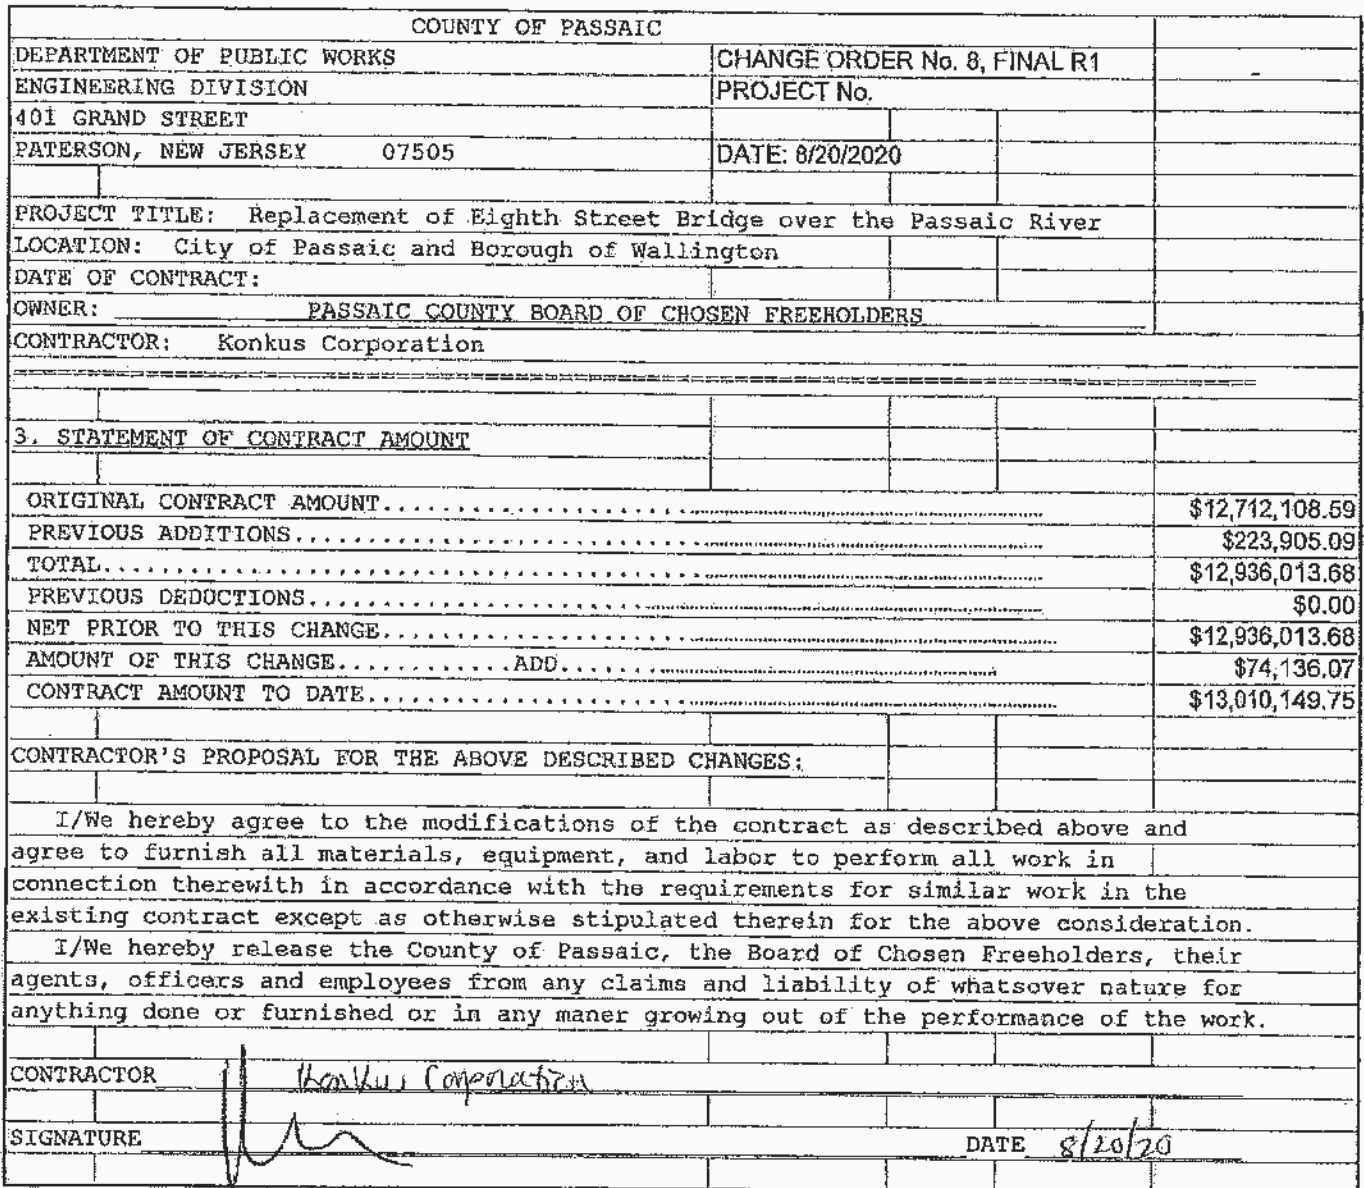 COUNTY OF PASSAIC
DEPARTMENT OF PUBLIC WORKS CHANGE ORDER No. 8, FINAL R1
ENGINEERING DIVISION PROJECT No.
401 GRAND STREET
PATERSON, NEW JERSEY 07505 DATE: 8/20/2020
PROJECT TITLE: Replacement of Eighth Street Bridge over the Passaic River
LOCATION: City of Passaic and Borough of Wallington
DATE OF CONTRACT:
OWNER: PASSAIC COUNTY BOARD OF CHOSEN FREEHOLDERS
CONTRACTOR: Konkus Corporation
3. STATEMENT OF CONTRACT AMOUNT
ORIGINAL CONTRACT AMOUNT $12,712,108.59
PREVIOUS ADDITIONS $223,905.09
TOTAL $12,936,013.68
PREVIOUS DEDUCTIONS $0.00
NET PRIOR TO THIS CHANGE $12,936,013.68
AMOUNT OF THIS CHANGE ADD $74,136.07
CONTRACT AMOUNT TO DATE $13,010,149.75
CONTRACTOR'S PROPOSAL FOR THE ABOVE DESCRIBED CHANGES:
I/We hereby agree to the modifications of the contract as described above and
agree to furnish all materials, equipment, and labor to perform all work in
connection therewith in accordance with the requirements for similar work in the
existing contract except as otherwise stipulated therein for the above consideration.
I/We hereby release the County of Passaic, the Board of Chosen Freeholders, their
agents, officers and employees from any claims and liability of whatsover nature for
anything done or furnished or in any maner growing out of the performance of the work.
CONTRACTOR Konkus Corporation
SIGNATURE DATE 8/20/20